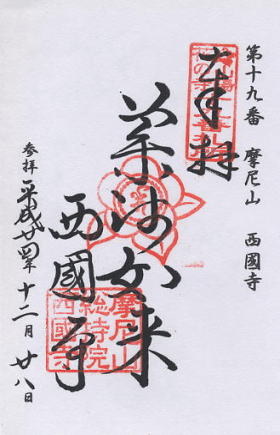 第十九番 摩尼山 西國寺
奉拝
薬師如来
西國寺
摩尼山
総持院
西國寺
参拝 平成廿四年 十二月 廿八日